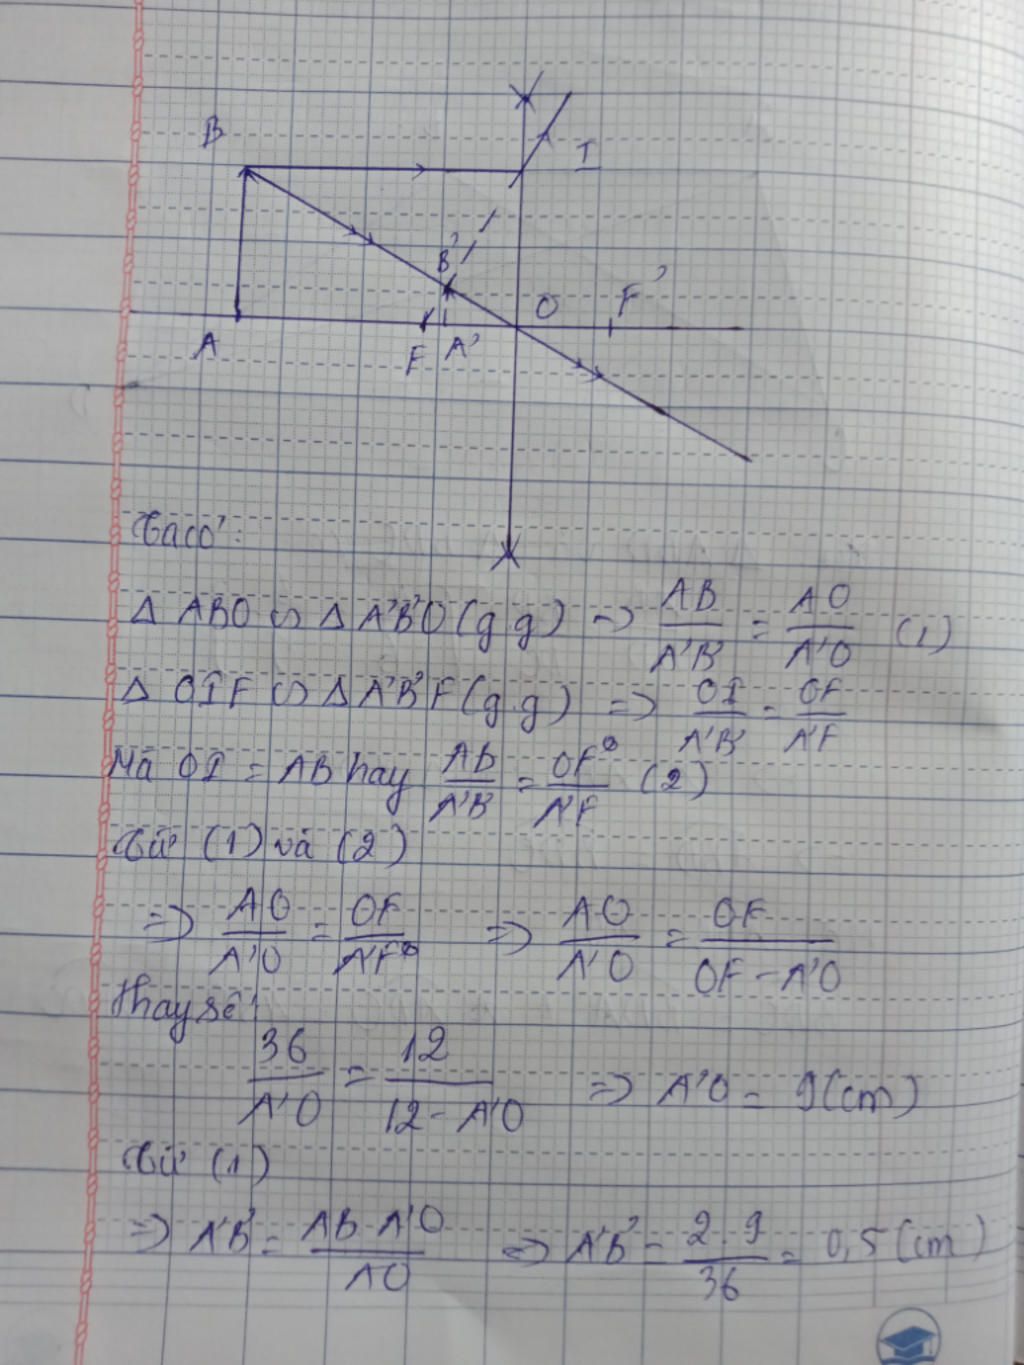 B
I
B'
O
F'
A
F
A'
Ta có:
Δ ABO ∽ Δ A'B'O (g.g) => AB/A'B' = AO/A'O (1)
Δ OIF ∽ Δ A'B'F (g.g) => OI/A'B' = OF/A'F
Mà OI = AB hay AB/A'B' = OF/A'F (2)
Từ (1) và (2)
=> AO/A'O = OF/A'F => AO/A'O = OF/OF - A'O
Thay số:
36/A'O = 12/12 - A'O => A'O = 9 (cm)
Từ (1)
=> A'B' = AB.A'O/AO => A'B' = 2.9/36 = 0,5 (cm)